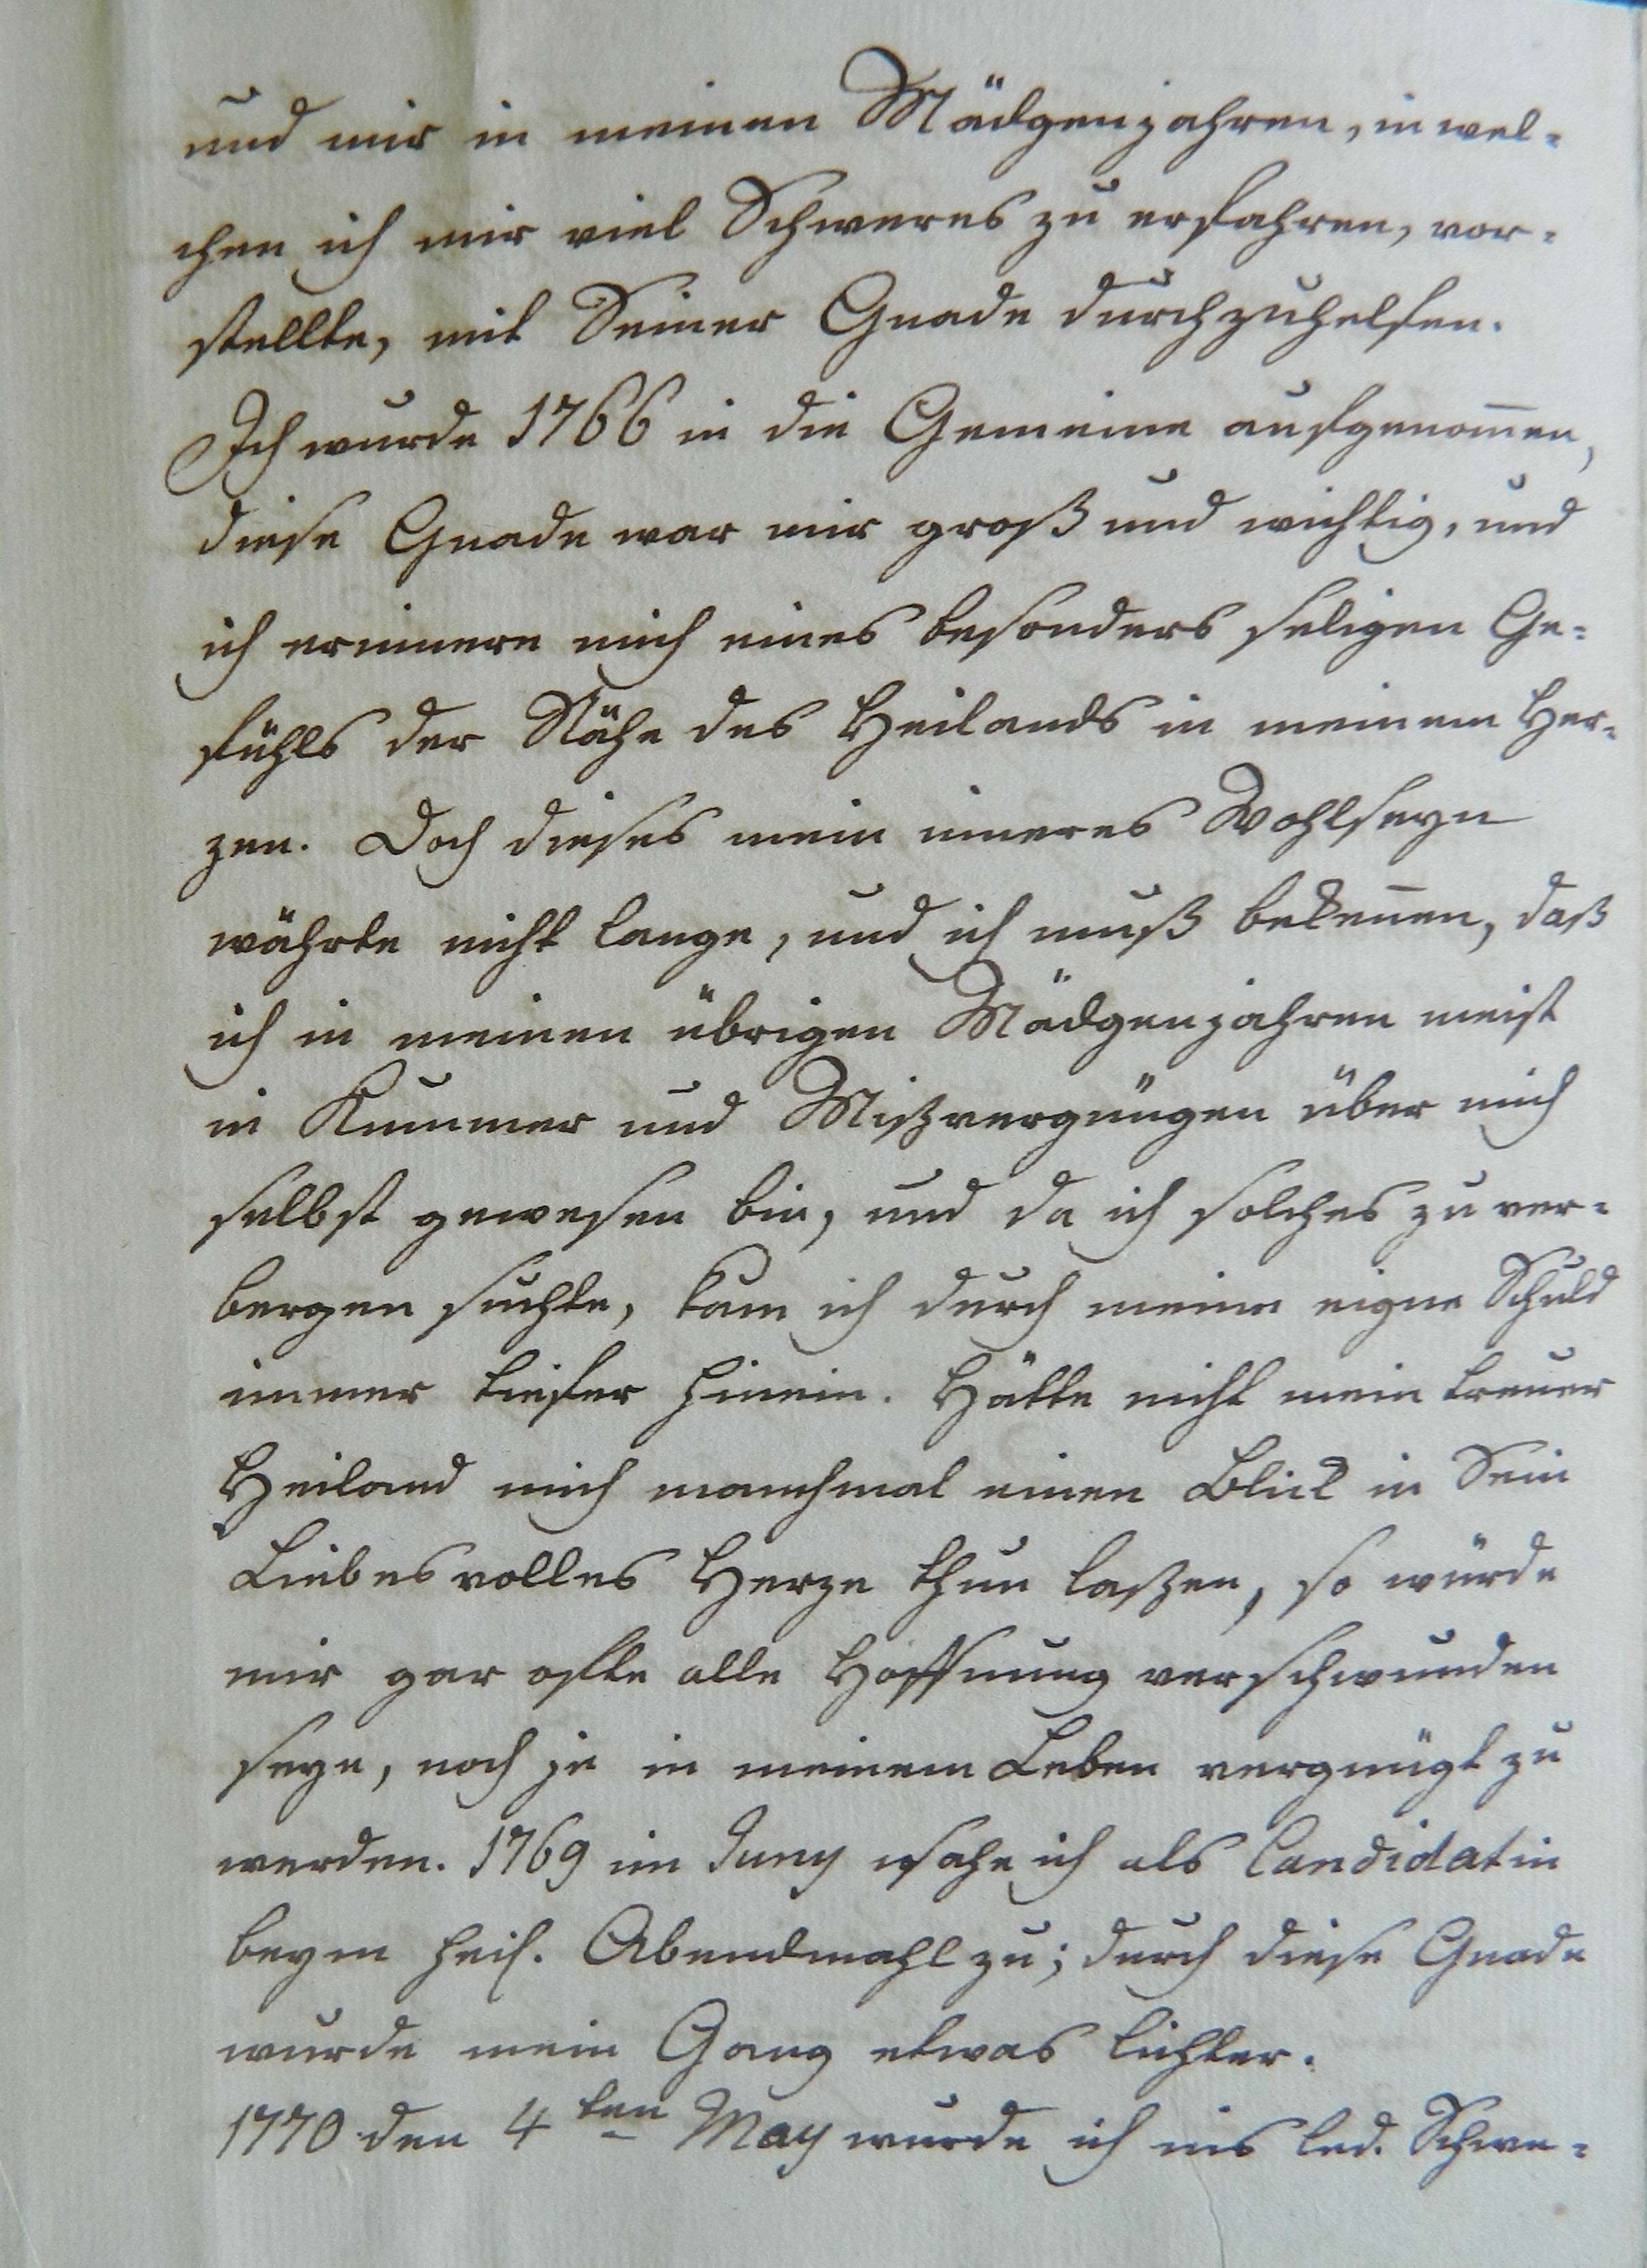 und mir in meinen Mädgenjahren, in wel-
chen ich mir viel Schweres zu erfahren, vor-
stellte, mit Seiner Gnade durchzuhelfen.
Ich wurde 1766 in die Gemeine aufgenom̅en,
diese Gnade war mir groß und wichtig, und
ich erinnere mich eines besonders seligen Ge-
fühls der Nähe des Heilands in meinem Her-
zen. Doch dieses mein inneres Wohlseyn
währte nicht lange, und ich muß beken̅en, daß
ich in meinen übrigen Mädgenjahren meist
in Kummer und Mißvergnügen über mich
selbst gewesen bin, und da ich solches zu ver-
bergen suchte, kam ich durch meine eigne Schuld
immer tiefer hinein. Hätte nicht mein treuer
Heiland mich manchmal einen Blick in Sein
Liebesvolles Herze thun laßen, so würde
mir gar ofte alle Hoffnung verschwunden
seyn, noch je in meinem Leben vergnügt zu
werden. 1769 im Juny sahe ich als Candidatin
beym heil. Abendmahl zu; durch diese Gnade
wurde mein Gang etwas lichter.
1770 den 4ten May wurde ich ins led. Schwe-